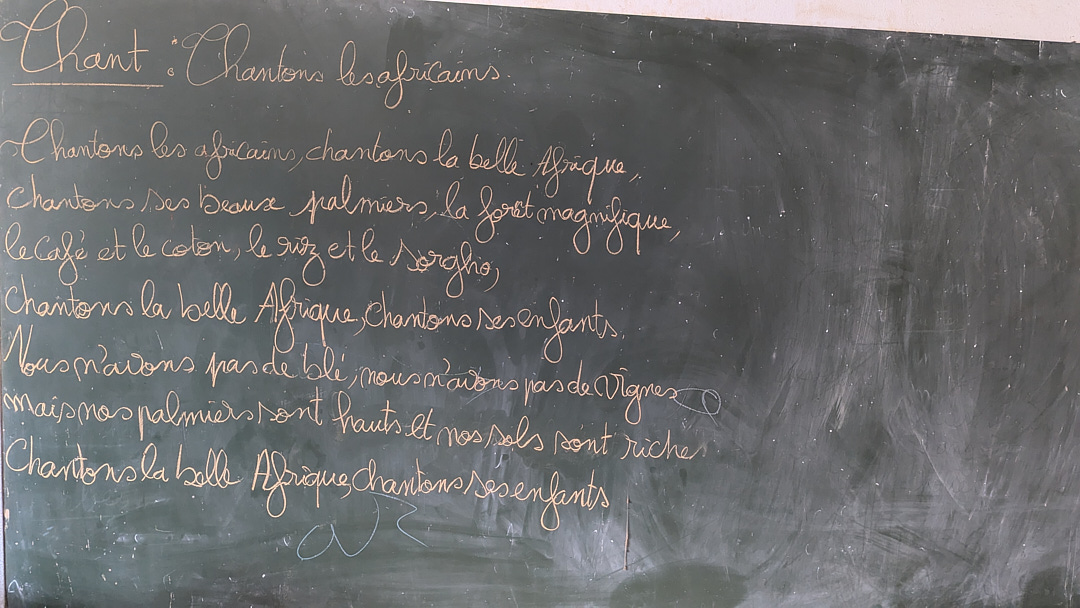 Chant : Chantons les africains.
Chantons les africains, chantons la belle Afrique,
chantons ses beaux palmiers, la forêt magnifique,
le café et le coton, le riz et le sorgho,
chantons la belle Afrique, chantons ses enfants.
Nous n'avons pas de blé, nous n'avons pas de vignes
mais nos palmiers sont hauts et nos sols sont riches
Chantons la belle Afrique, chantons ses enfants